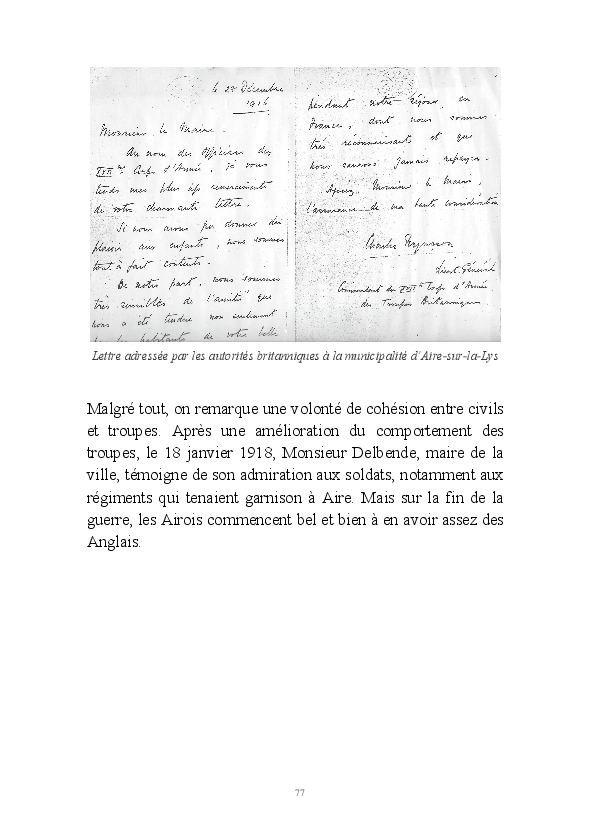 le 28 Décembre
1916
Monsieur le Maire.
Au nom des Officiers du
Corps d'Armée, je vous
tends mes plus remerciements
de votre charmante lettre.
Si nous avons pu donner du
plaisir aux enfants, nous sommes
tout à fait contents.
De notre part, nous sommes
très sensibles de l'amitié que
nous a été tendue non seulement
habitants de votre belle
pendant notre séjour en
France, dont nous sommes
très reconnaissants et que
nous saurons jamais repayer.
Agréez, Monsieur le Maire,
l'assurance de ma haute considération
Charles Fergusson
Lieut. Général
Commandant du Corps d'Armée
des Troupes Britanniques
Lettre adressée par les autorités britanniques à la municipalité d'Aire-sur-la-Lys
Malgré tout, on remarque une volonté de cohésion entre civils
et troupes. Après une amélioration du comportement des
troupes, le 18 janvier 1918, Monsieur Delbende, maire de la
ville, témoigne de son admiration aux soldats, notamment aux
régiments qui tenaient garnison à Aire. Mais sur la fin de la
guerre, les Airois commencent bel et bien à en avoir assez des
Anglais.
77